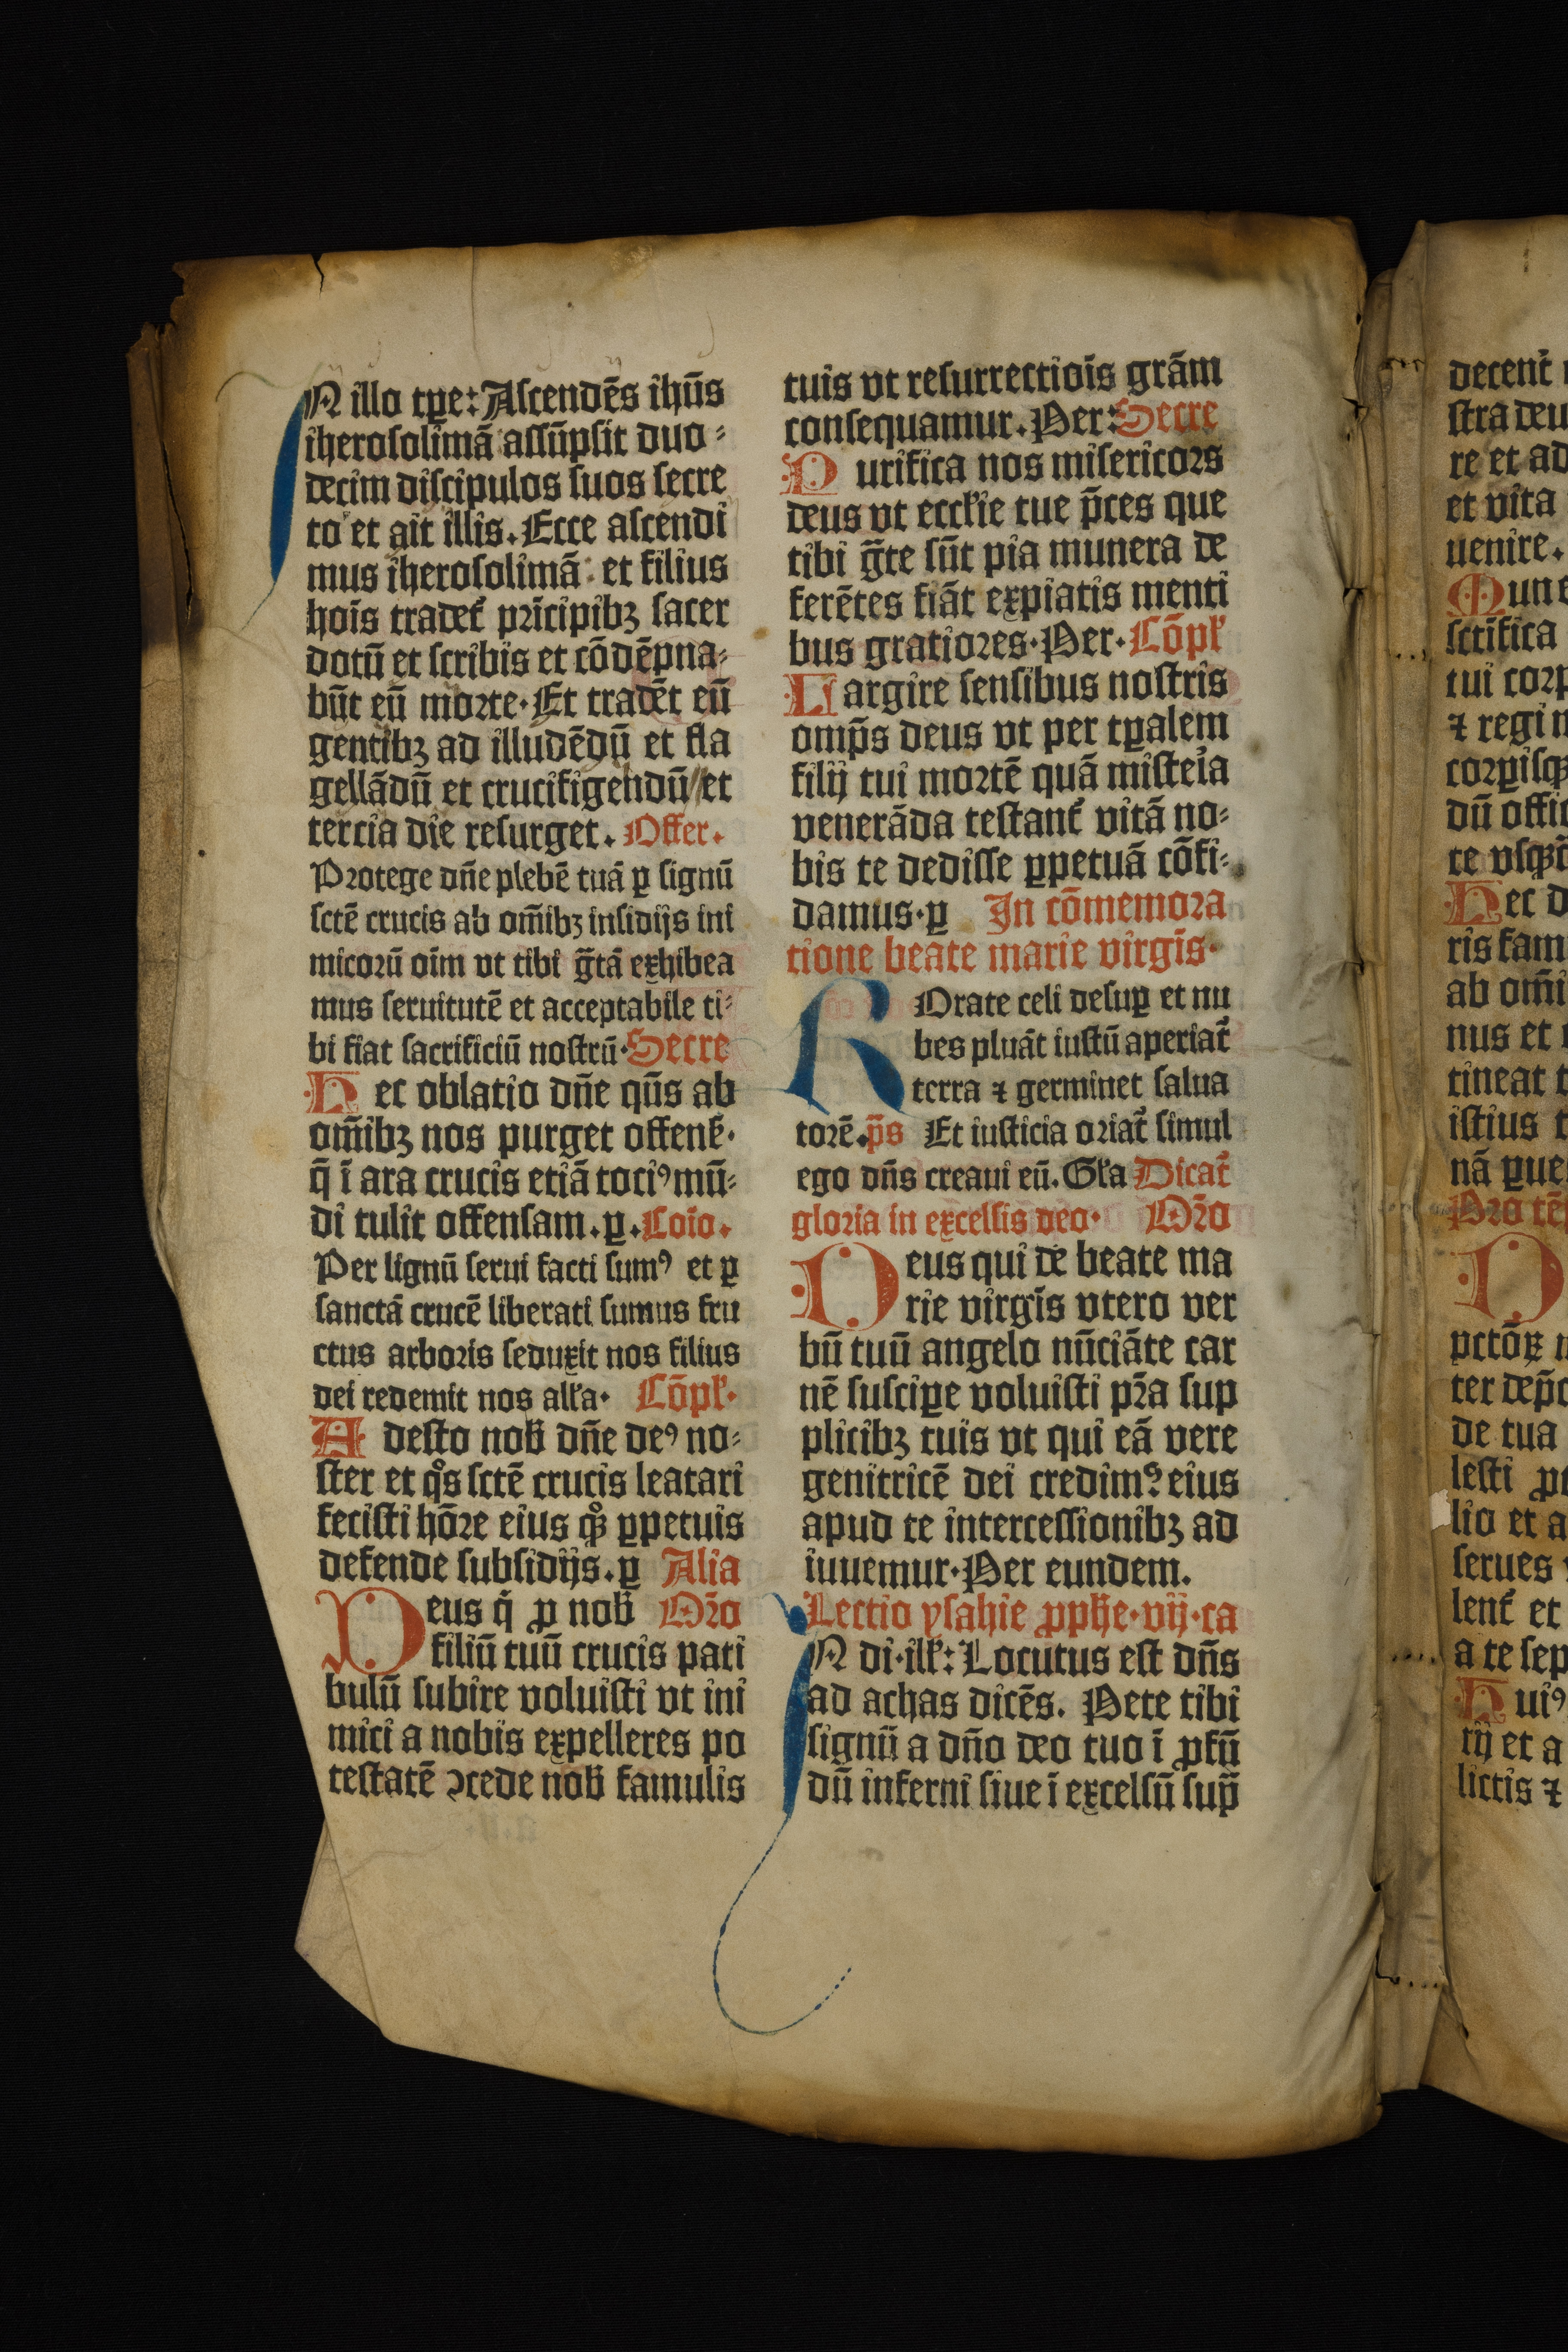 IN illo tꝑe: Aſcendēs ihūs
iheroſolimā aſſūpſit duo⸗
decim diſcipulos ſuos ſecre
to et ait illis. Ecce aſcendi
mus iheroſolimā: et filius
hoīs tradet᷑ prīcipibꝫ ſacer
dotū et ſcribis et cōdēpna⸗
būt eū morte· Et tradēt eū
gentibꝫ ad illudēdū et fla
gellādū et crucifigendū et
tercia die reſurget. Offer.
Protege dn̄e plebē tuā ꝑ ſignū
ſctē crucis ab om̄ibꝫ inſidijs ini
micorū oīm vt tibi ḡtā exhibea
mus ſeruitutē et acceptabile ti⸗
bi fiat ſacrificiū noſtrū· Secre
Hec oblatio dn̄e qūs ab
om̄ibꝫ nos purget offenſ·
q̄ ī ara crucis etiā tociꝰ mū⸗
di tulit offenſam. ꝑ. Coīo.
Per lignū ſerui facti ſumꝰ et ꝑ
ſanctā crucē liberati ſumus fru
ctus arboris ſeduxit nos filius
dei redemit nos alľa· Cōpľ·
Adeſto nob̄ dn̄e deꝰ no⸗
ſter et qͦs ſctē crucis leatari
feciſti hōre eius qꝫ̊ ꝑpetuis
defende ſubſidijs. ꝑ Alia
Deus qͥ ꝓ nob̄ Or̄o
filiū tuū crucis pati
bulū ſubire voluiſti vt ini
mici a nobis expelleres po
teſtatē ↄcede nob̄ famulis
tuis vt reſurrectiōis grām
conſequamur. Per: Secre
Purifica nos miſericors
deus vt eccľie tue p̄ces que
tibi ḡte ſūt pia munera de
ferētes fiāt expiatis menti
bus gratiores· Per· Cōpľ
Largire ſenſibus noſtris
omp̄s deus vt per tꝑalem
filij tui mortē quā miſteͥa
venerāda teſtant᷑ vitā no⸗
bis te dediſſe ꝑpetuā cōfi⸗
damus· ꝑ In cōmemora
tione beate marie virgīs·
ROrate celi deſuꝑ et nu
bes pluāt iuſtū aperiat᷑
terra ⁊ germinet ſalua
torē. p̄s Et iuſticia oriat᷑ ſimul
ego dn̄s creaui eū. Gľa Dicat᷑
gloria in excelſis deo· Or̄o
Deus qui de beate ma
rie virgīs vtero ver
bū tuū angelo nūciāte car
nē ſuſciꝑe voluiſti pr̄a ſup
plicibꝫ tuis vt qui eā vere
genitricē dei credimꝰ eius
apud te interceſſionibꝫ ad
iuuemur· Per eundem.
Lectio yſahie ꝓpħe· vij· ca
IN di· ilľ: Locutus eſt dn̄s
ad achas dicēs. Pete tibi
ſignū a dn̄o deo tuo ī ꝓfū
dū inferni ſiue ī excelſū ſup̄
decent᷑
ſtra deu
re et ad
et vita
uenire.
Mune
ſctīfica
tui corp
⁊ regi
corꝑiſqꝫ
dū offic
te vſqꝫ
Hec d
ris fam
ab om̄i
nus et
tineat
iſtius
nā ꝑue
Pro tē
D
pctōꝝ
ter dep̄c
de tua
leſti ꝓ
lio et a
ſerues
lent᷑ et
a te ſep
Huiꝰ
rij et a
lictis ⁊